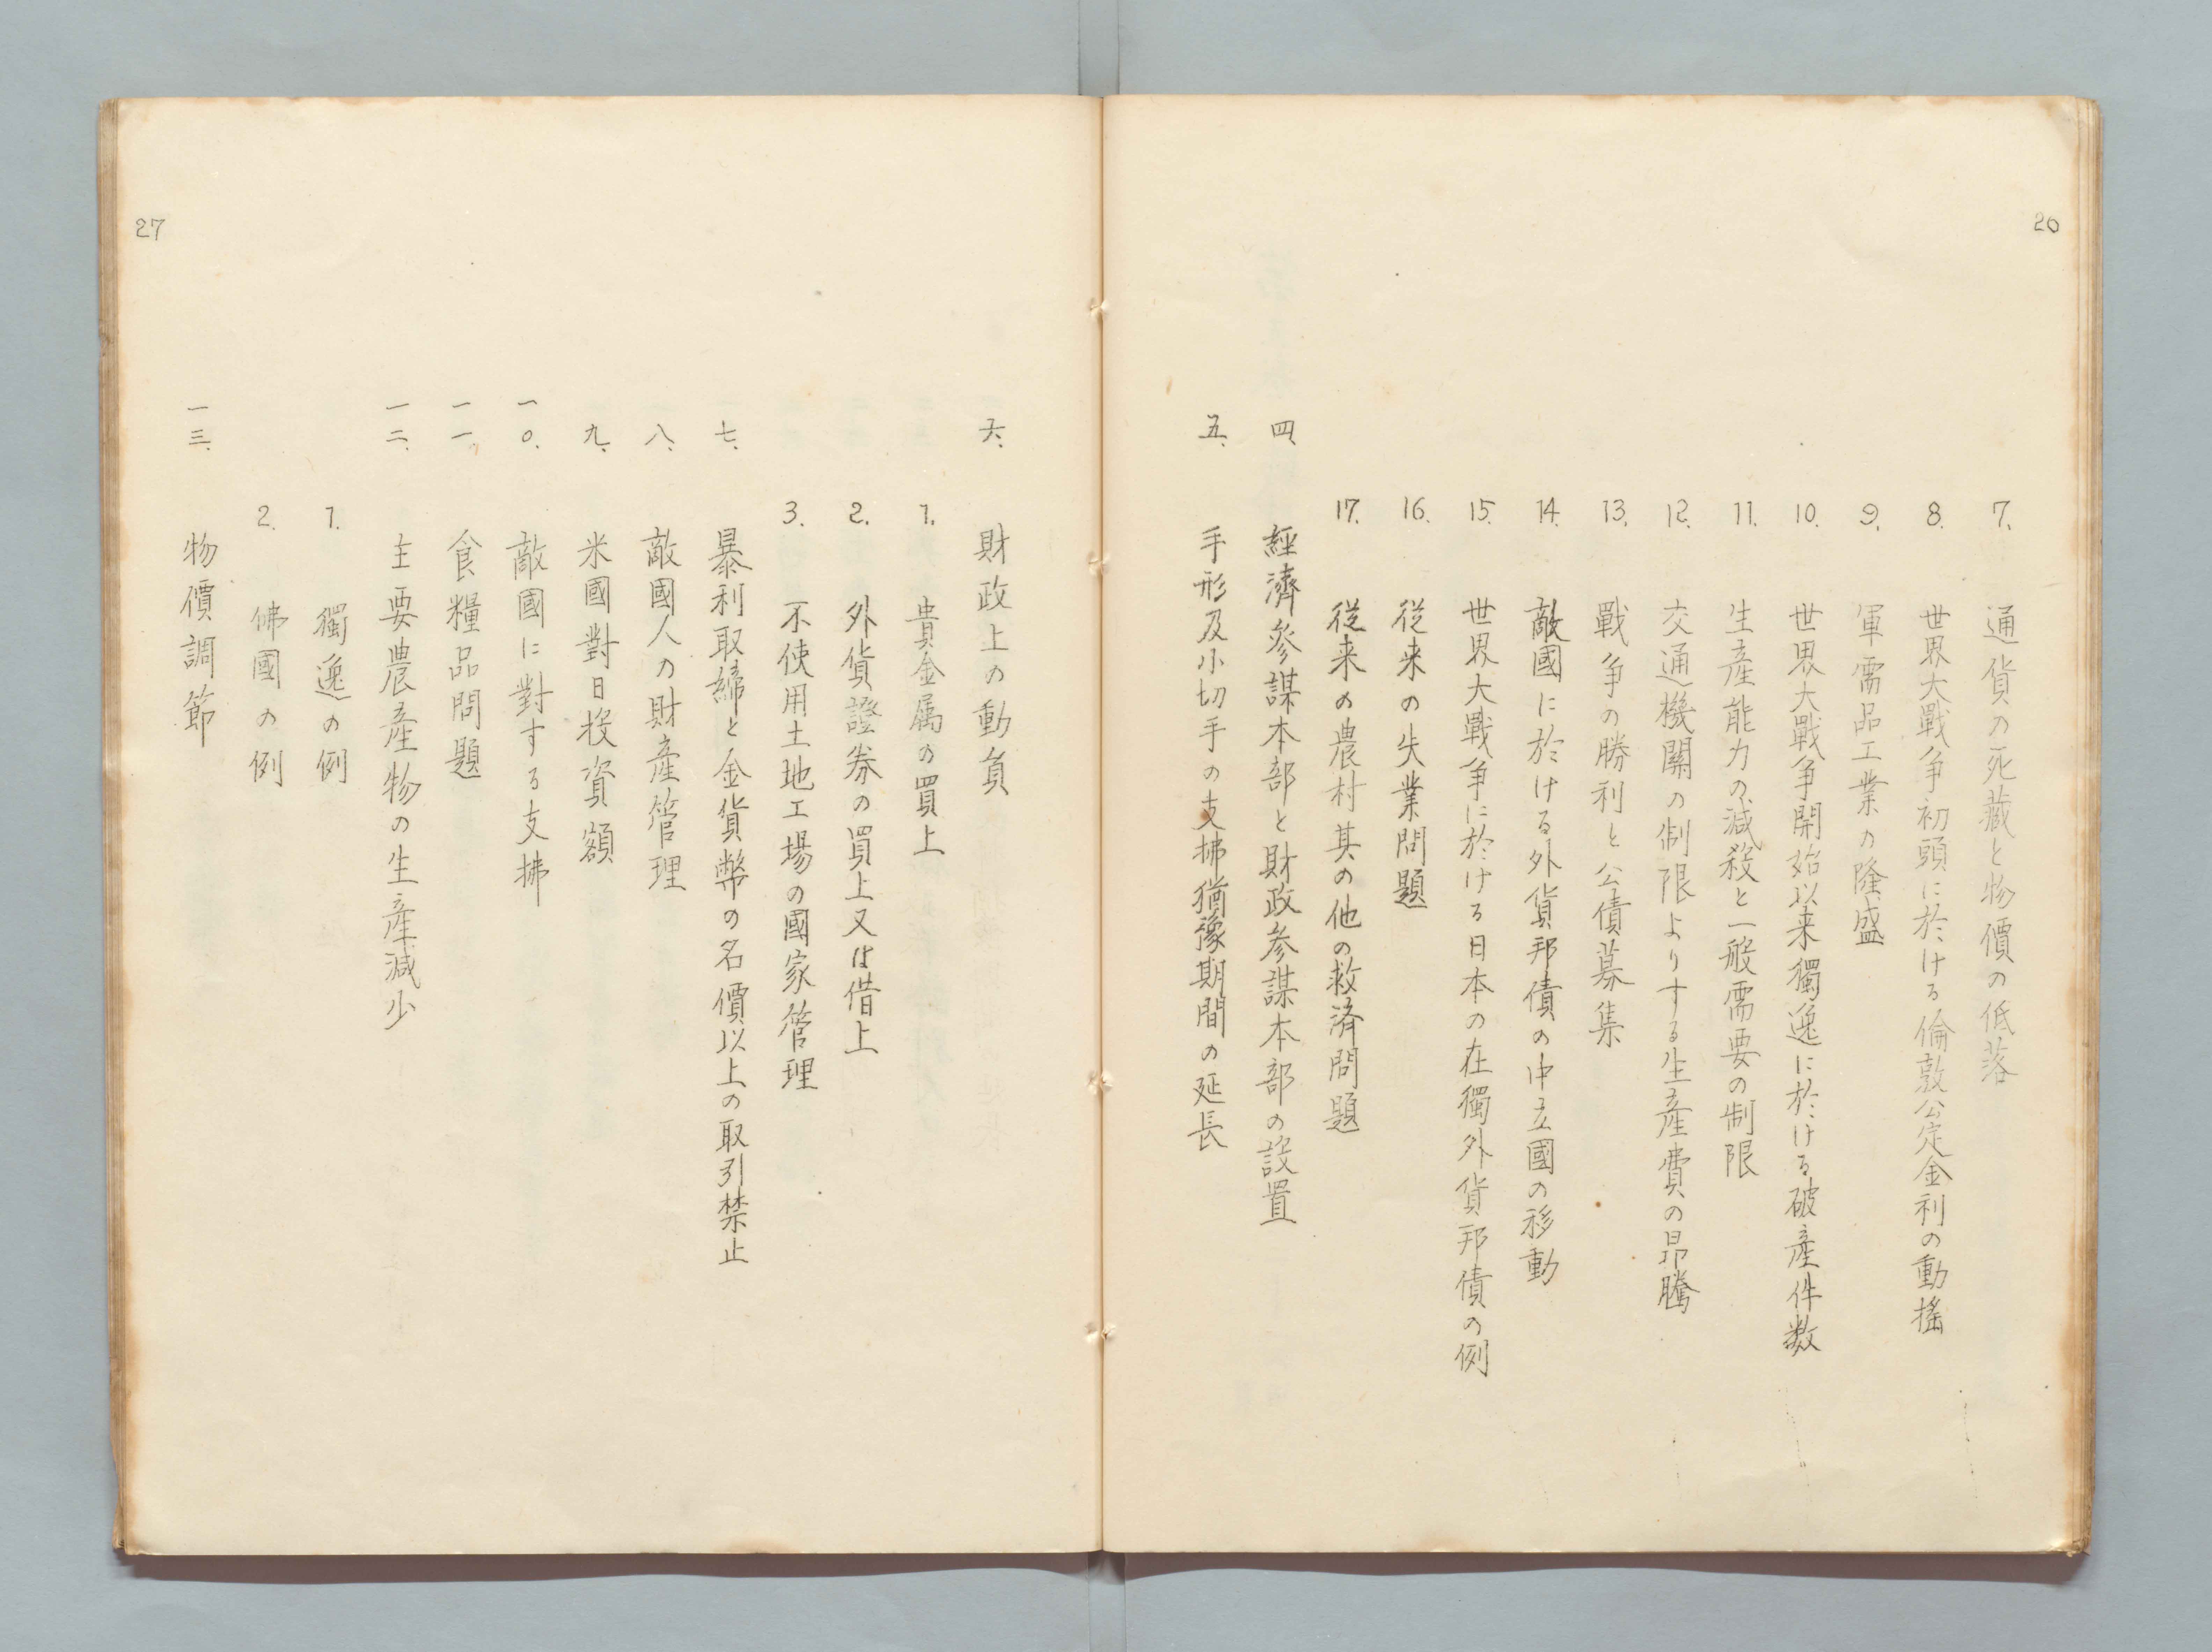 26
7. 通貨の死藏と物價の低落
8. 世界大戰爭初頭に於ける倫敦公定金利の動搖
9. 軍需品工業の隆盛
10. 世界大戰爭開始以来獨逸に於ける破産件数
11. 生産能力の減殺と一般需要の制限
12. 交通機關の制限よりする生産費の昂騰
13. 戰爭の勝利と公債募集
14. 敵國に於ける外貨邦債の中立國の移動
15. 世界大戰爭に於ける日本の在獨外貨邦債の例
16. 従来の失業問題
17. 従来の農村其の他の救済問題
四、 經濟參謀本部と財政参謀本部の設置
五、 手形及小切手の支拂猶豫期間の延長
六、 財政上の動員
1. 貴金属の買上
2. 外貨證券の買上又は借上
3. 不使用土地工場の國家管理
七、 暴利取締と金貨幣の名價以上の取引禁止
八、 敵國人の財産管理
九、 米國對日投資額
一〇、 敵國に對する支拂
一一、 食糧品問題
一二、 主要農産物の生産減少
1. 獨逸の例
2. 佛國の例
一三、 物價調節
27